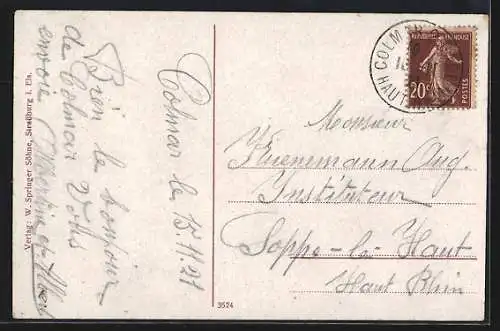 Verlag: W. Springer Söhne, Straßburg i. Els.
Bien le bonjour
de Colmar Vous
envoie et Albert
Colmar le 15.11.21
3524
COLMAR
HAUT
REPUBLIQUE FRANÇAISE
20c
POSTES
Monsieur
Kuenemann Aug.
Instituteur
Soppe-le-Haut
Haut Rhin